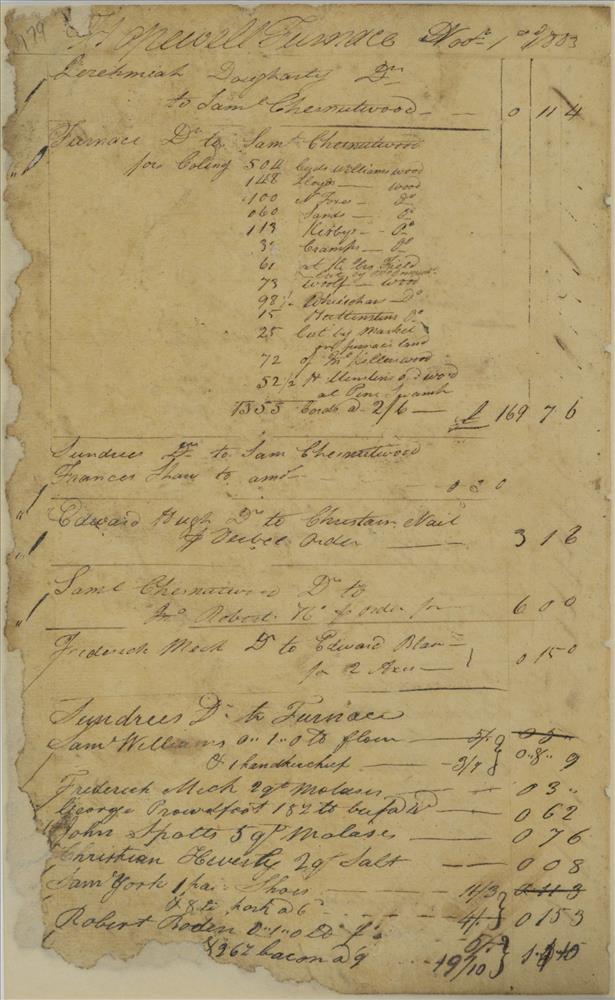 179
Hopewell Furnace Novr 1st 1803
Jerehmiah Dougharty Dr
to Saml Chesnutwood — — 0 11 4
Furnace Dr to Saml Chesnutwood
for Coling 504 Cords Williams wood
148 Lloyds — wood
100 Do
060 Lands — Do
113 Kirbys — Do
3 Cramps — Do
61 at the Field
73 Woolf — wood
98 1/2 Do
15 Hottenstins Do
25 Cut by Market
on furnace land
72 of wood
52 1/2 wood
at
1355 Cords a 2/6 — £ 169 7 6
Sundrees Dr to Sam Chesnutwood
Frances Shary to amt — 0 3 0
Edward Hugh Dr to Christain Nail
Order — 3 1 6
Saml Chesnutwood Dr to
Jno Robert order for — 6 0 0
Frederick Meck Dr to Edward Blar —
for 2 Axes — 0 15 0
Sundrees Dr to Furnace
Saml Williams 0" 1" 0 flour — 5/.
& 1 handkerchief — 3/7 0" 8" 9
Frederick Mick 2 qt Molases — 0 3 "
George Prowdfoot 182 — 0 6 2
John Spotts 5 qt Molases — 0 7 6
Christian Heverly 2 qt Salt — 0 0 8
Saml York 1 pair Shoes — 11/3 0 11 3
& 8 pork a 6 — 4/. 0 15 3
Robert Roden 0" 1" 0 5/.
& 26 1/2 bacon a 9 19/10